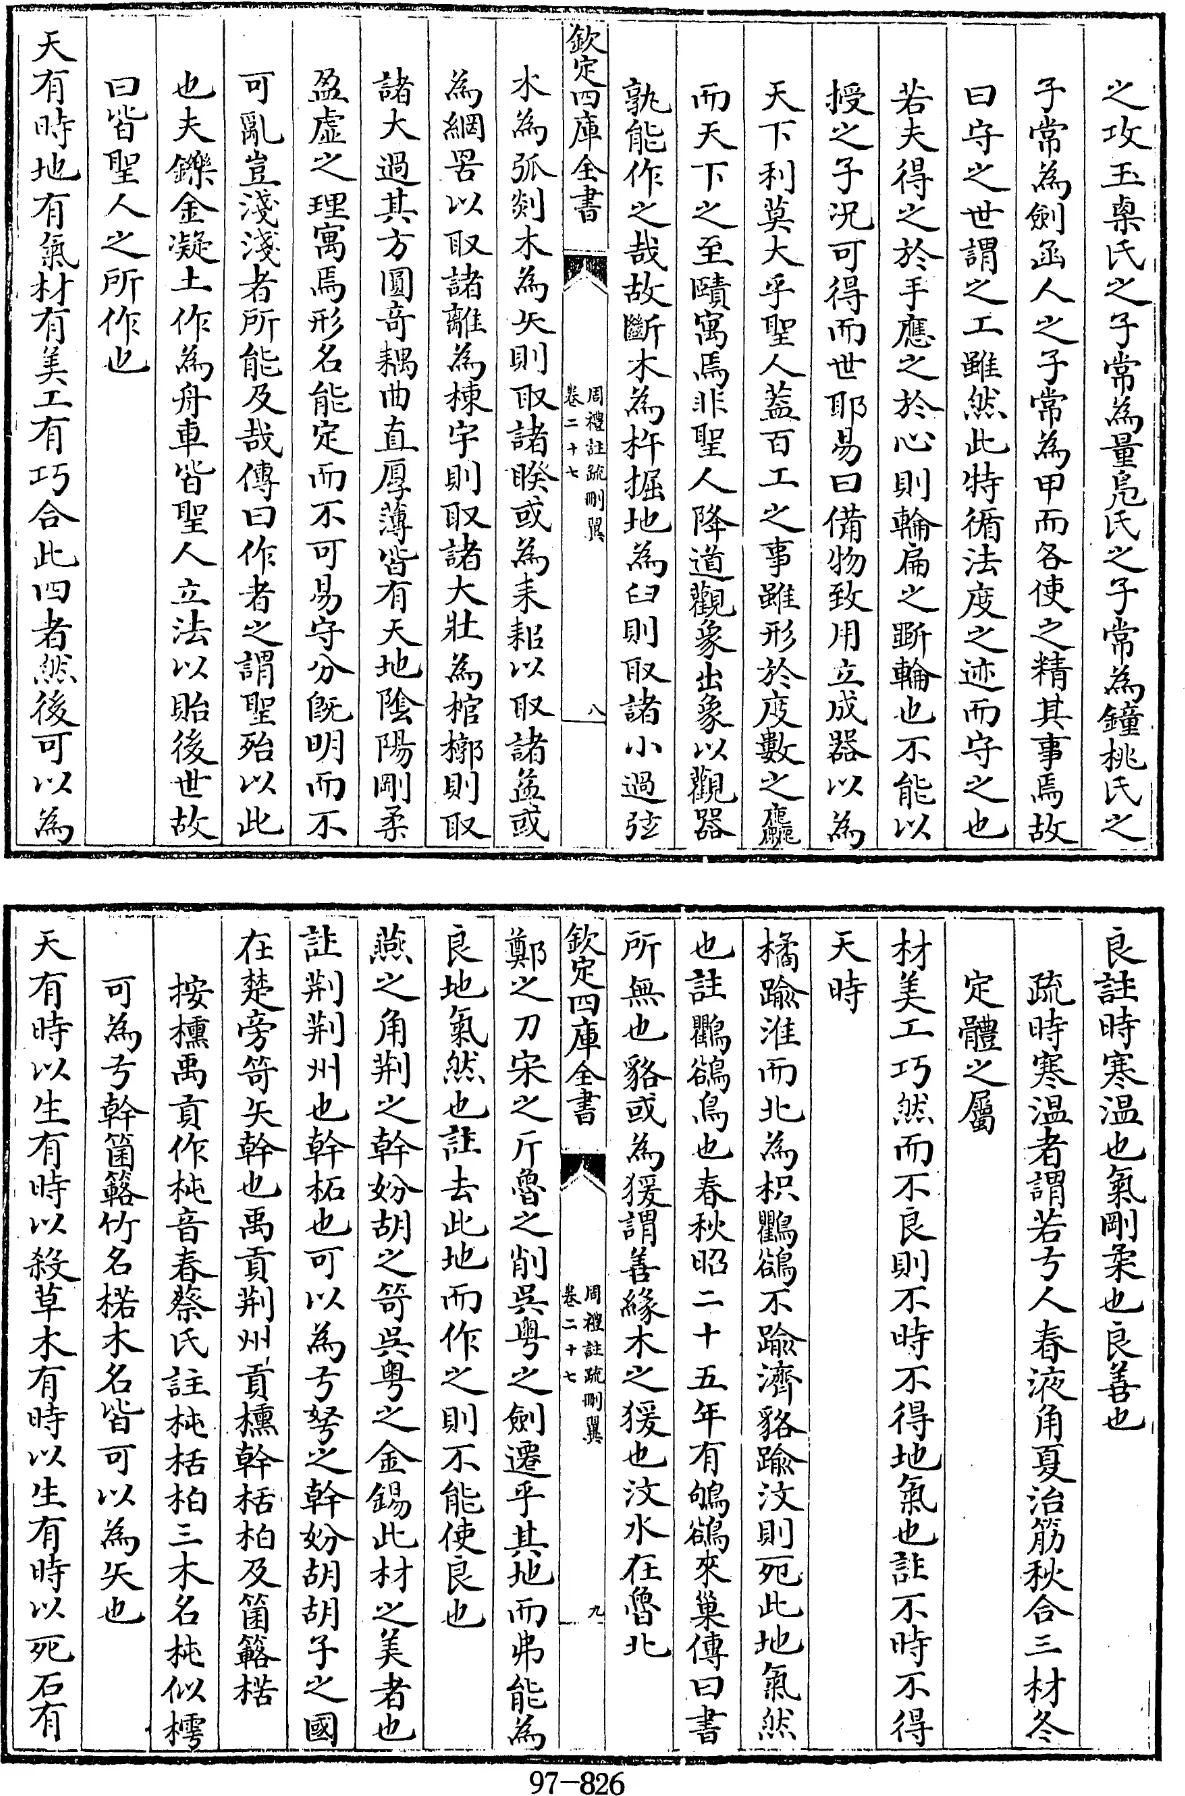 之攻玉㮚氏之子常為量鳬氏之子常為鐘桃氏之
子常為劍函人之子常為甲而各使之精其事焉故
曰守之世謂之工雖然此特循法度之迹而守之也
若夫得之於手應之於心則輪扁之斵輪也不能以
授之子況可得而世耶易曰備物致用立成器以為
天下利莫大乎聖人蓋百工之事雖形於度數之麤
而天下之至賾寓焉非聖人降道觀象出象以觀器
孰能作之哉故斷木為杵掘地為臼則取諸小過弦
欽定四庫全書
周禮註疏刪翼
卷二十七
八
木為弧剡木為矢則取諸睽或為耒耜以取諸益或
為網罟以取諸離為棟宇則取諸大壯為棺槨則取
諸大過其方圓奇耦曲直厚薄皆有天地陰陽剛柔
盈虛之理寓焉形名能定而不可易守分既明而不
可亂豈淺淺者所能及哉傳曰作者之謂聖殆以此
也夫鑠金凝土作為舟車皆聖人立法以貽後世故
曰皆聖人之所作也
天有時地有氣材有美工有巧合此四者然後可以為
良註時寒温也氣剛柔也良善也
疏時寒温者謂若弓人春液角夏治筋秋合三材冬
定體之屬
材美工巧然而不良則不時不得地氣也註不時不得
天時
橘踰淮而北為枳鸜鵒不踰濟貉踰汶則死此地氣然
也註鸜鵒鳥也春秋昭二十五年有鴝鵒來巢傳曰書
所無也貉或為猨謂善緣木之猨也汶水在魯北
欽定四庫全書
周禮註疏刪翼
卷二十七
九
鄭之刀宋之斤魯之削呉粤之劍遷乎其地而弗能為
良地氣然也註去此地而作之則不能使良也
燕之角荆之幹妢胡之笴呉粤之金錫此材之美者也
註荆荆州也幹柘也可以為弓弩之幹妢胡胡子之國
在楚旁笴矢幹也禹貢荆州貢櫄幹栝柏及箘簵楛
按櫄禹貢作杶音春蔡氏註杶栝柏三木名杶似樗
可為弓幹箘簵竹名楛木名皆可以為矢也
天有時以生有時以殺草木有時以生有時以死石有
97-826